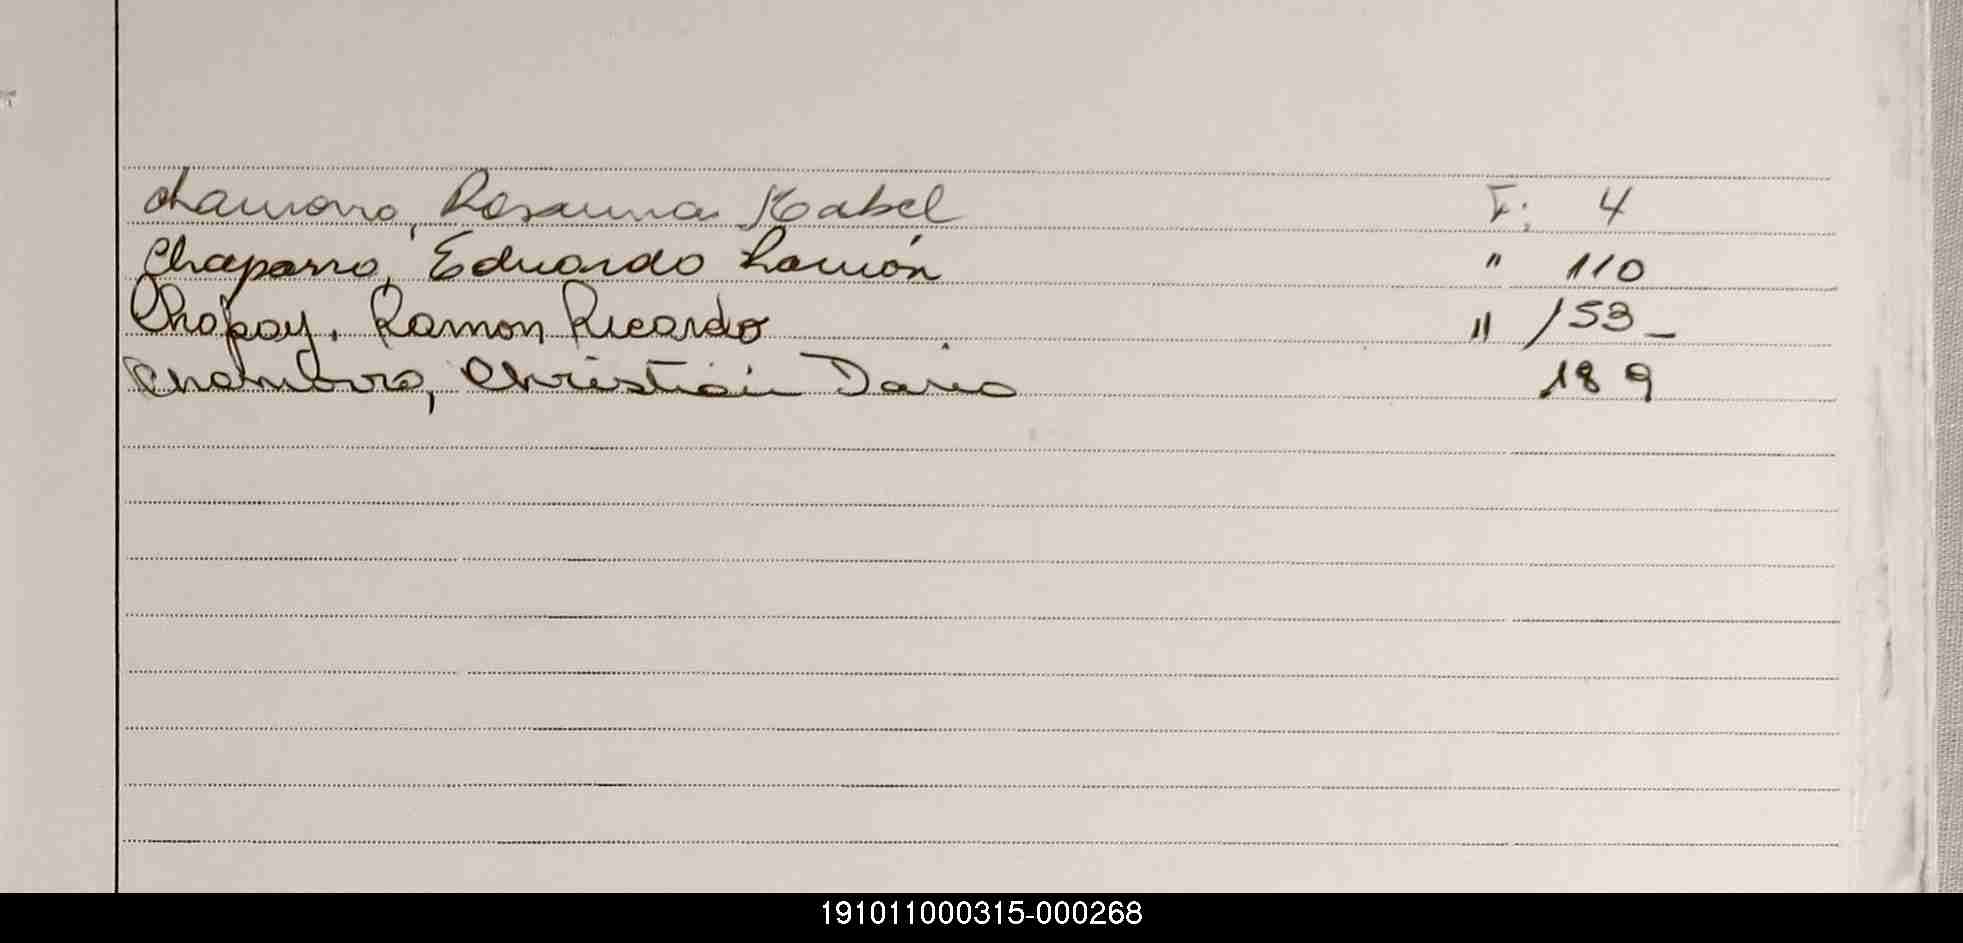 Chamorro, Rosanna Isabel F: 4
Chaparro, Eduardo Ramón " 110
Chapay, Ramon Ricardo " 153_
Chamorro, Christian Dario 189
191011000315-000268